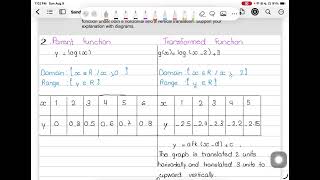 7:02 PM Sun Aug 9
function undergoes a horizontal and a vertical translation. Support your
explanation with diagrams.
2. Parent function
y = log(x)
Domain: {x ∈ R / x > 0}
Range: {y ∈ R}
x 1 2 3 4 5 6 7
y 0 0.3 0.5 0.6 0.7 0.8
Transformed function
g(x) = log(x-2)+3
Domain: {x ∈ R / x > 2}
Range: {y ∈ R}
x 1 2 3 4 5 6 7
y = af k(x-d)+c
The graph is translated 2 units
horizontally and translated 3 units to
upward vertically.